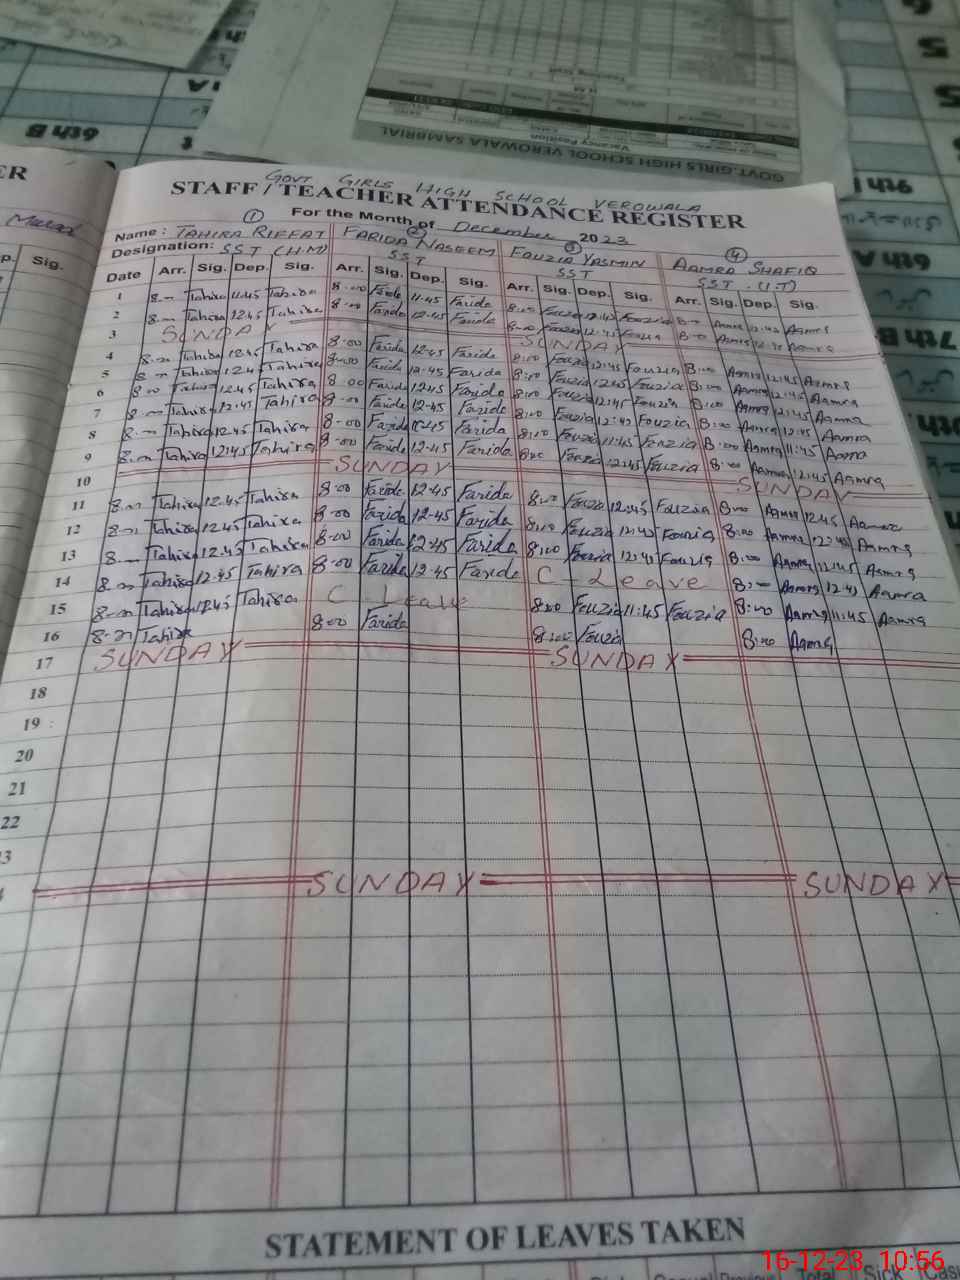 6th B
GOVT.GIRLS HIGH SCHOOL VEROWALA SAMBRIAL
Vacancy Position
7th B
6th A
Sig.
GOVT GIRLS HIGH SCHOOL VEROWALA
STAFF / TEACHER ATTENDANCE REGISTER
For the Month of December 2023
① ② ③ ④
Name : TAHIRA RIFFAT FARIDA NASEEM FOUZIA YASMIN AAMRA SHAFIQ
Designation: SST (H.M) SST SST SST (I.T)
Date Arr. Sig. Dep. Sig. Arr. Sig. Dep. Sig. Arr. Sig. Dep. Sig. Arr. Sig. Dep. Sig.
1 8-00 Tahira 11.45 Tahira 8-00 Farida 11-45 Farida 8:00 Fouzia Fouzia 8:00 Aamra Aamra
2 8-00 Tahira 12.45 Tahira 8-00 Farida 12-45 Farida 8:00 Fouzia 12:45 Fouzia 8:00 Aamra Aamra
3 SUNDAY SUNDAY
4 8-00 Tahira 12.45 Tahira 8-00 Farida 12-45 Farida 8:00 Fouzia 12:45 Fouzia 8:00 Aamra 12:45 Aamra
5 8-00 Tahira 12.45 Tahira 8-00 Farida 12-45 Farida 8:00 Fouzia 12:45 Fouzia 8:00 Aamra 12:45 Aamra
6 8-00 Tahira 12.45 Tahira 8-00 Farida 12-45 Farida 8:00 Fouzia 12:45 Fouzia 8:00 Aamra 12:45 Aamra
7 8-00 Tahira 12.45 Tahira 8-00 Farida 12-45 Farida 8:00 Fouzia 12:45 Fouzia 8:00 Aamra 12:45 Aamra
8 8-00 Tahira 12.45 Tahira 8-00 Farida Farida 8:00 Fouzia 11:45 Fouzia 8:00 Aamra 11:45 Aamra
9 8-00 Tahira 12.45 Tahira 8-00 Farida 12-45 Farida 8:00 Fouzia 12:45 Fouzia 8:00 Aamra 12:45 Aamra
10 SUNDAY SUNDAY
11 8-00 Tahira 12.45 Tahira 8-00 Farida 12-45 Farida 8:00 Fouzia 12:45 Fouzia 8:00 Aamra 12:45 Aamra
12 8-00 Tahira 12.45 Tahira 8-00 Farida 12-45 Farida 8:00 Fouzia 12:45 Fouzia 8:00 Aamra 12:45 Aamra
13 8-00 Tahira 12.45 Tahira 8-00 Farida 12-45 Farida 8:00 Fouzia 12:45 Fouzia 8:00 Aamra Aamra
14 8-00 Tahira 12.45 Tahira 8-00 Farida 12-45 Farida C - Leave 8:00 Aamra 12:45 Aamra
15 8-00 Tahira Tahira C - Leave 8:00 Fouzia 11:45 Fouzia 8:00 Aamra 11:45 Aamra
16 8-00 Tahira 8-00 Farida 8:00 Fouzia 8:00 Aamra
17 SUNDAY SUNDAY
18
19
20
21
22
SUNDAY SUNDAY
STATEMENT OF LEAVES TAKEN
16-12-23 10:56